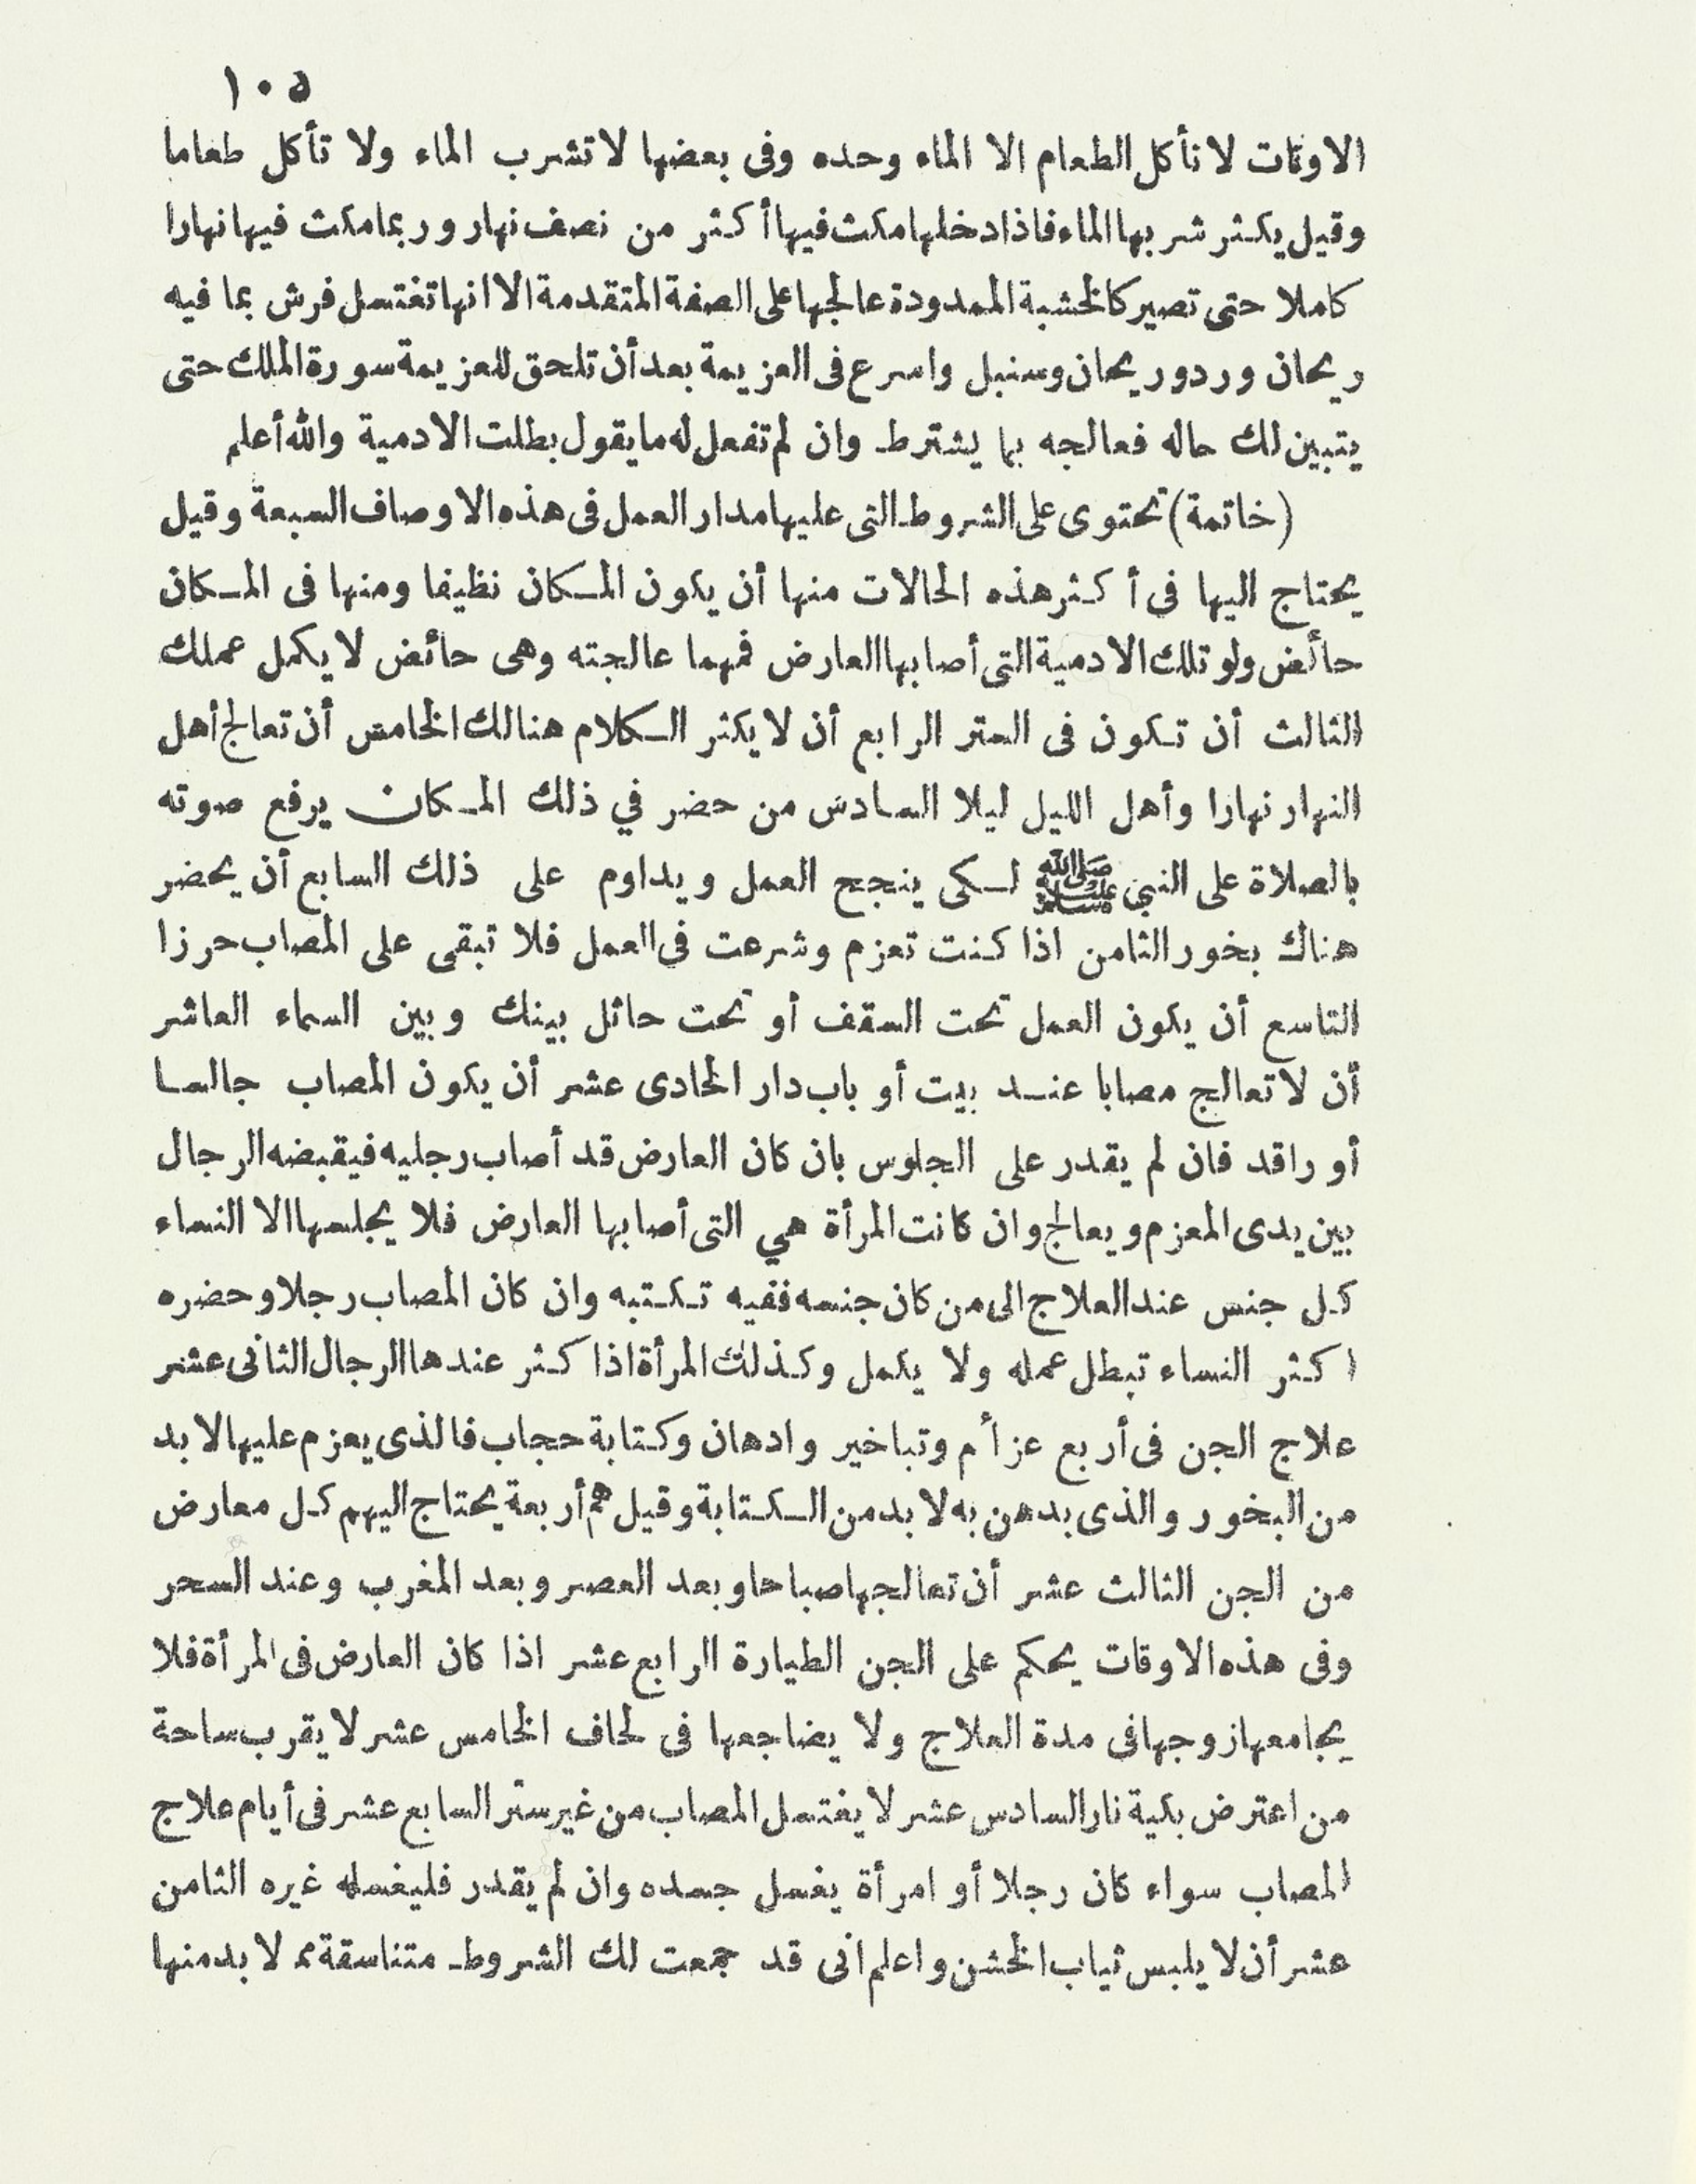 ١٠٥
الاوقات لا تأكل الطعام الا الماء وحده وفى بعضها لا تشرب الماء ولا تأكل طعاما
وقيل يكثر شربها الماء فاذا دخلها مكث فيها أكثر من نصف نهار وربما مكث فيها نهارا
كاملا حتى تصير كالخشبة الممدودة عالجها على الصفة المتقدمة الا انها تغتسل فرش بما فيه
ريحان وورد وريحان وسنبل واسرع فى العزيمة بعد أن تلحق للعزيمة سورة الملك حتى
يتبين لك حاله فعالجه بما يشترط وان لم تفعل له ما يقول بطلت الادمية والله أعلم
(خاتمة) تحتوى على الشروط التى عليها مدار العمل فى هذه الاوصاف السبعة وقيل
يحتاج اليها فى أكثر هذه الحالات منها أن يكون المكان نظيفا ومنها فى المكان
حائض ولو تلك الادمية التى أصابها العارض فمهما عالجته وهى حائض لا يكمل عملك
الثالث أن تكون فى الستر الرابع أن لا يكثر الكلام هنالك الخامس أن تعالج أهل
النهار نهارا وأهل الليل ليلا السادس من حضر في ذلك المكان يرفع صوته
بالصلاة على النبي ﷺ لكى ينجح العمل ويداوم على ذلك السابع أن يحضر
هناك بخور الثامن اذا كنت تعزم وشرعت فى العمل فلا تبقى على المصاب حرزا
التاسع أن يكون العمل تحت السقف أو تحت حائل بينك وبين السماء العاشر
أن لا تعالج مصابا عند بيت أو باب دار الحادى عشر أن يكون المصاب جالسا
أو راقد فان لم يقدر على الجلوس بان كان العارض قد أصاب رجليه فيقبضه الرجال
بين يدى المعزم ويعالج وان كانت المرأة هي التى أصابها العارض فلا يجلسها الا النساء
كل جنس عند العلاج الى من كان جنسه ففيه تكتبه وان كان المصاب رجلا وحضره
اكثر النساء تبطل عمله ولا يكمل وكذلك المرأة اذا كثر عندها الرجال الثانى عشر
علاج الجن فى أربع عزأم وتباخير وادهان وكتابة حجاب فالذى يعزم عليها لا بد
من البخور والذى يدهن به لا بد من الكتابة وقيل هم أربعة يحتاج اليهم كل معارض
من الجن الثالث عشر أن تعالجها صباحا وبعد العصر وبعد المغرب وعند السحر
وفى هذه الاوقات يحكم على الجن الطيارة الرابع عشر اذا كان العارض فى المرأة فلا
يجامعها زوجها فى مدة العلاج ولا يضاجعها فى لحاف الخامس عشر لا يقرب ساحة
من اعترض بكية نار السادس عشر لا يغتسل المصاب من غير ستر السابع عشر فى أيام علاج
المصاب سواء كان رجلا أو امرأة يغسل جسده وان لم يقدر فليغسله غيره الثامن
عشر أن لا يلبس ثياب الخشن واعلم انى قد جمعت لك الشروط متناسقة مما لا بد منها